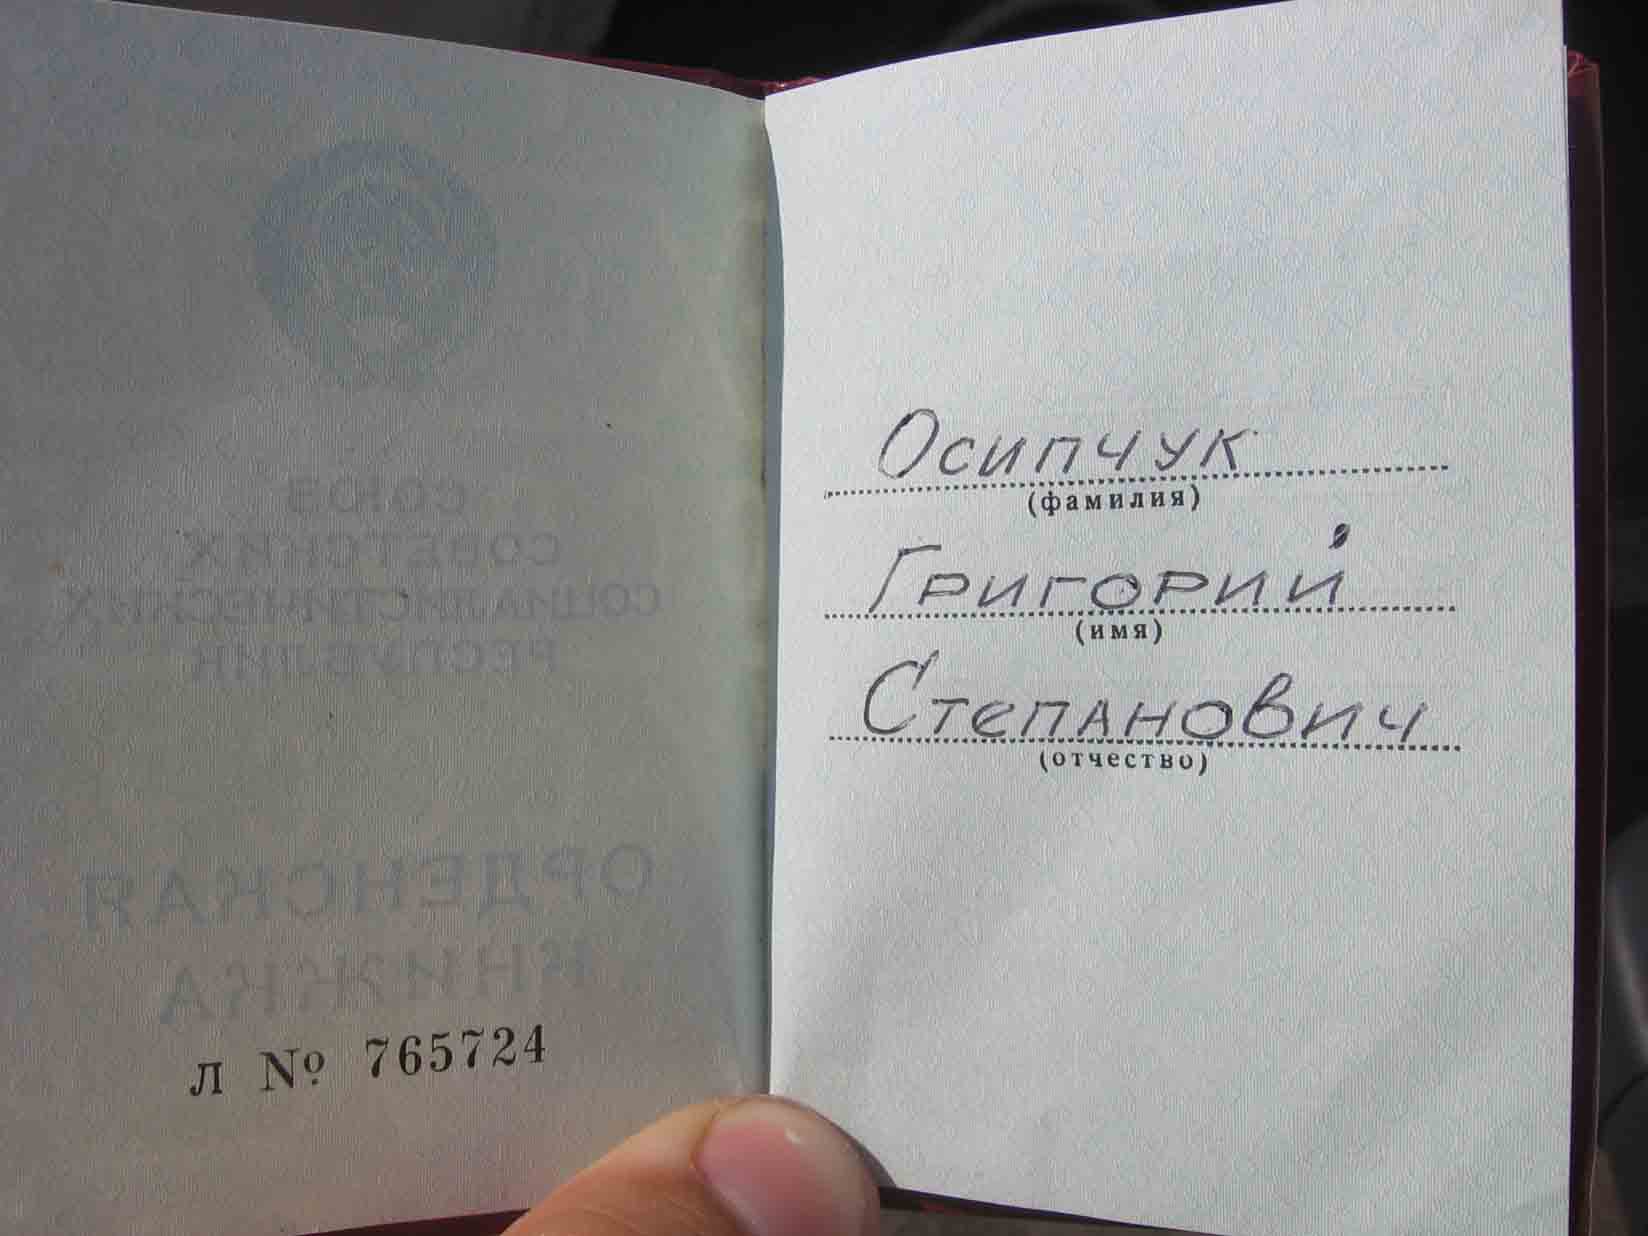 СОЮЗ
СОВЕТСКИХ
СОЦИАЛИСТИЧЕСКИХ
РЕСПУБЛИК
ОРДЕНСКАЯ
КНИЖКА
Л № 765724
Осипчук
(фамилия)
Григорий
(имя)
Степанович
(отчество)